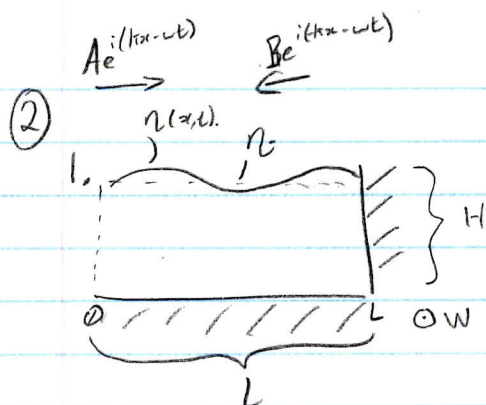 Ae^{i(kx-ωt)} Be^{i(-kx-ωt)}
②
η(x,t). η
1.
H
0 L ⊙W
L